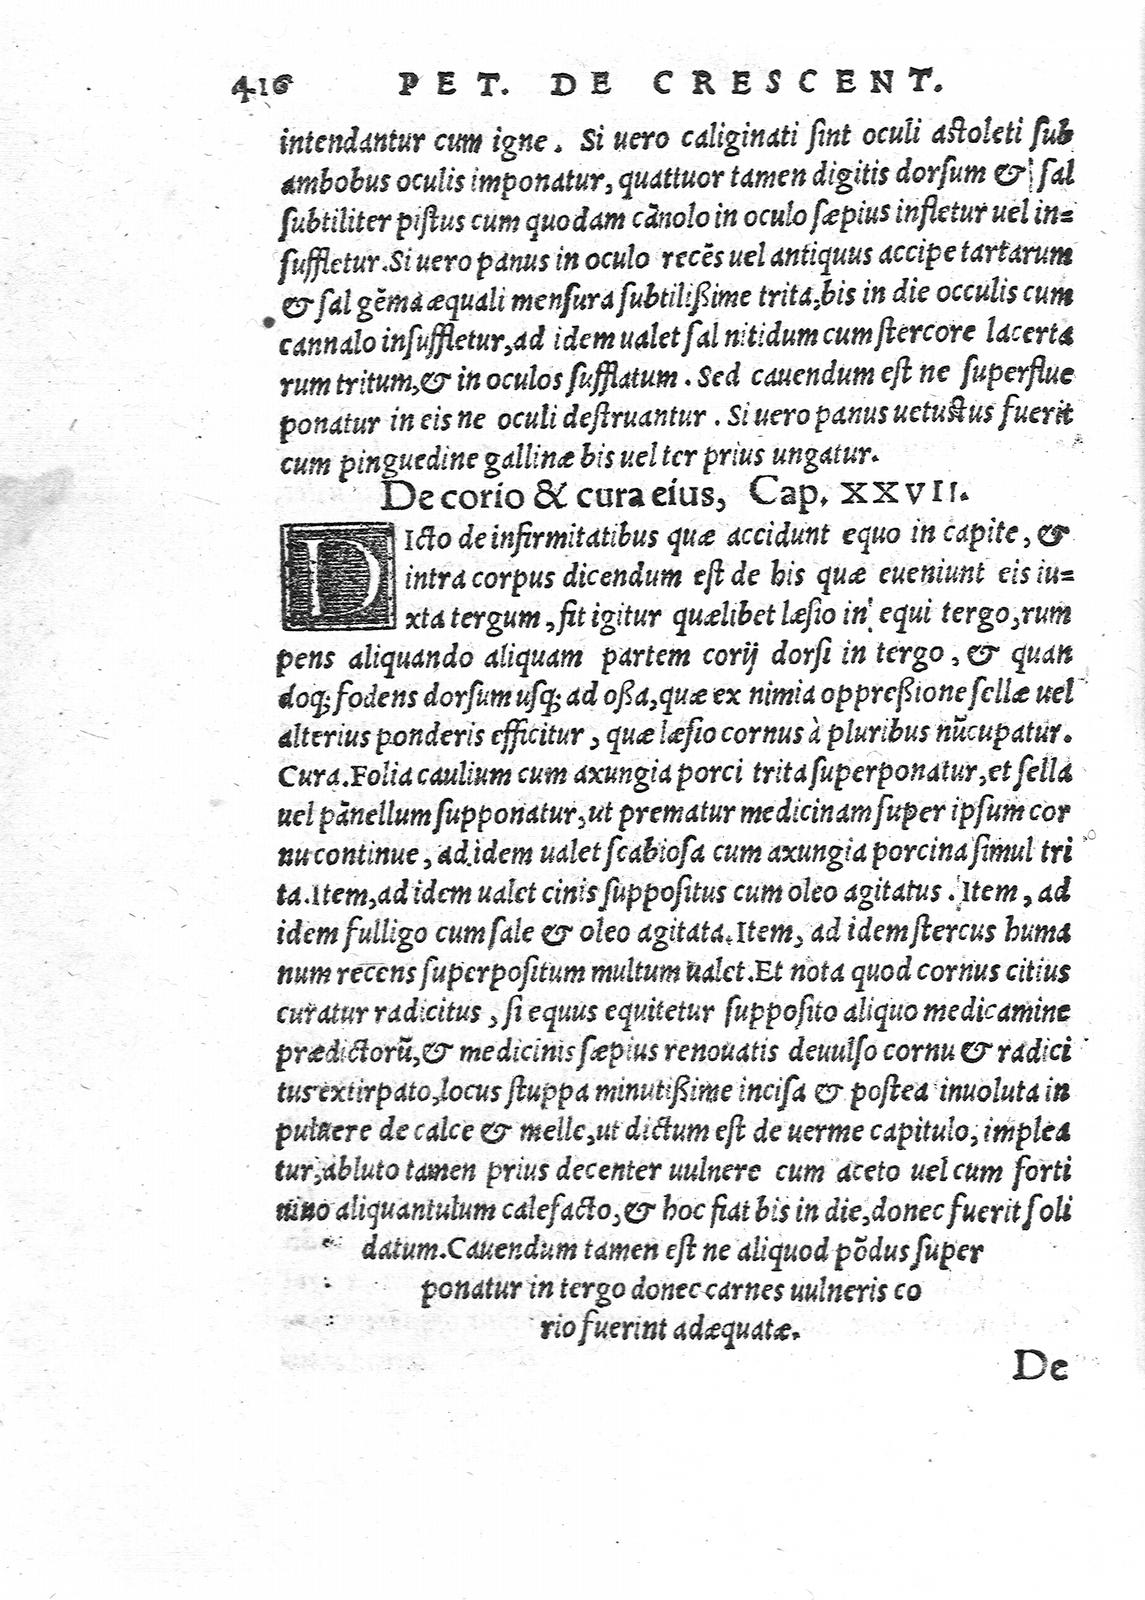 416 PET. DE CRESCENT.
intendantur cum igne. Si uero caliginati ſint oculi aſtoleti ſub
ambobus oculis imponatur, quattuor tamen digitis dorſum & ſal
ſubtiliter piſtus cum quodam cānolo in oculo ſæpius infletur uel in=
ſuffletur. Si uero panus in oculo recēs uel antiquus accipe tartarum
& ſal gēma æquali menſura ſubtilißime trita, bis in die occulis cum
cannalo inſuffletur, ad idem ualet ſal nitidum cum ſtercore lacerta
rum tritum, & in oculos ſufflatum. Sed cauendum eſt ne ſuperflue
ponatur in eis ne oculi deſtruantur. Si uero panus uetuſtus fuerit
cum pinguedine gallinæ bis uel ter prius ungatur.
De corio & cura eius, Cap. XXVII.
DIcto de infirmitatibus quæ accidunt equo in capite, &
intra corpus dicendum eſt de his quæ eueniunt eis iu=
xta tergum, fit igitur quælibet læſio in equi tergo, rum
pens aliquando aliquam partem corij dorſi in tergo, & quan
doq; fodens dorſum uſq; ad oßa, quæ ex nimia oppreßione ſellæ uel
alterius ponderis efficitur, quæ læſio cornus à pluribus nūcupatur.
Cura. Folia caulium cum axungia porci trita ſuperponatur, et ſella
uel pānellum ſupponatur, ut prematur medicinam ſuper ipſum cor
nu continue, ad idem ualet ſcabioſa cum axungia porcina ſimul tri
ta. Item, ad idem ualet cinis ſuppoſitus cum oleo agitatus. Item, ad
idem fulligo cum ſale & oleo agitata. Item, ad idem ſtercus huma
num recens ſuperpoſitum multum ualet. Et nota quod cornus citius
curatur radicitus, ſi equus equitetur ſuppoſito aliquo medicamine
prædictorū, & medicinis ſæpius renouatis deuulſo cornu & radici
tus extirpato, locus ſtuppa minutißime inciſa & poſtea inuoluta in
puluere de calce & melle, ut dictum eſt de uerme capitulo, implea
tur, abluto tamen prius decenter uulnere cum aceto uel cum forti
uino aliquantulum calefacto, & hoc fiat bis in die, donec fuerit ſoli
datum. Cauendum tamen eſt ne aliquod pōdus ſuper
ponatur in tergo donec carnes uulneris co
rio fuerint adæquatæ.
De